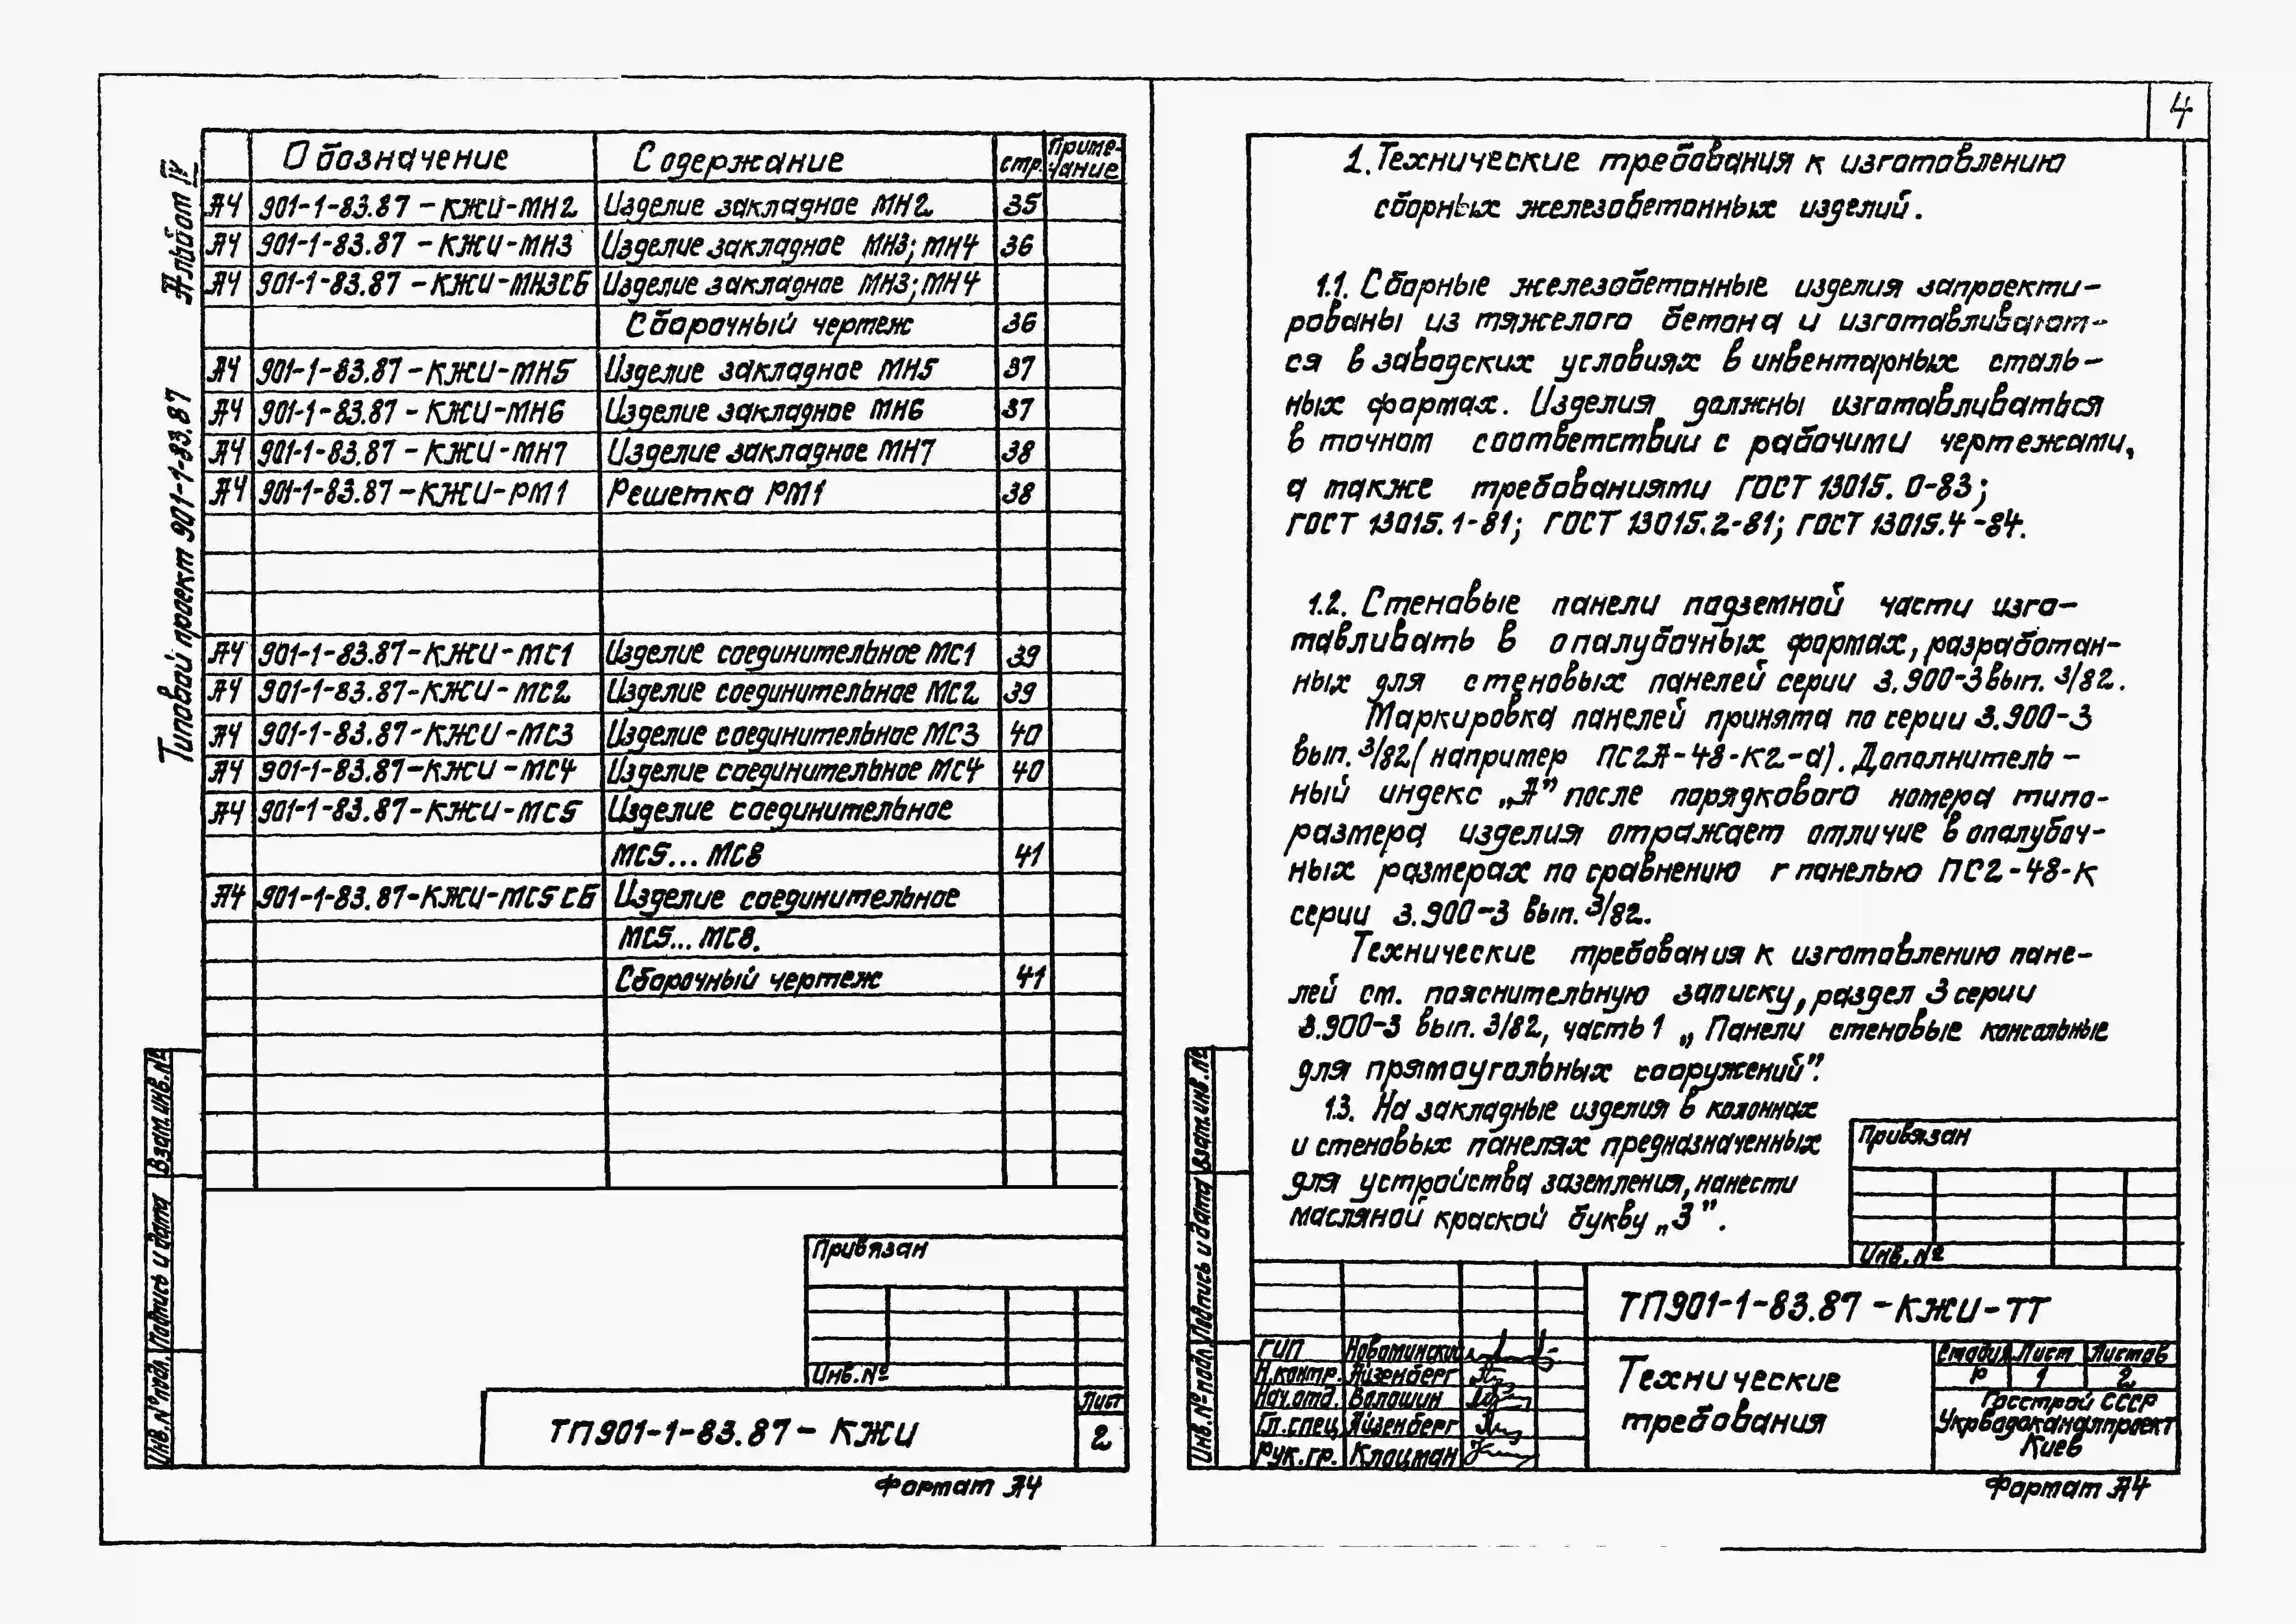 4
Альбом IV
Типовой проект 901-1-83.87
Обозначение Содержание стр. Приме-
чание
А4 901-1-83.87-КЖИ-МН2 Изделие закладное МН2 35
А4 901-1-83.87-КЖИ-МН3 Изделие закладное МН3; МН4 36
А4 901-1-83.87-КЖИ-МН3СБ Изделие закладное МН3; МН4
Сборочный чертеж 36
А4 901-1-83.87-КЖИ-МН5 Изделие закладное МН5 37
А4 901-1-83.87-КЖИ-МН6 Изделие закладное МН6 37
А4 901-1-83.87-КЖИ-МН7 Изделие закладное МН7 38
А4 901-1-83.87-КЖИ-РМ1 Решетка РМ1 38
А4 901-1-83.87-КЖИ-МС1 Изделие соединительное МС1 39
А4 901-1-83.87-КЖИ-МС2 Изделие соединительное МС2 39
А4 901-1-83.87-КЖИ-МС3 Изделие соединительное МС3 40
А4 901-1-83.87-КЖИ-МС4 Изделие соединительное МС4 40
А4 901-1-83.87-КЖИ-МС5 Изделие соединительное
МС5...МС8 41
А4 901-1-83.87-КЖИ-МС5СБ Изделие соединительное
МС5...МС8.
Сборочный чертеж 41
Взам.инв.№
Подпись и дата
Инв.№ подл.
Привязан
Инв.№
ТП901-1-83.87-КЖИ
Лист
2
Формат А4
1. Технические требования к изготовлению
сборных железобетонных изделий.
1.1. Сборные железобетонные изделия запроекти-
рованы из тяжелого бетона и изготавливают-
ся в заводских условиях в инвентарных сталь-
ных формах. Изделия должны изготавливаться
в точном соответствии с рабочими чертежами,
а также требованиями ГОСТ 13015.0-83;
ГОСТ 13015.1-81; ГОСТ 13015.2-81; ГОСТ 13015.4-84.
1.2. Стеновые панели подземной части изго-
тавливать в опалубочных формах, разработан-
ных для стеновых панелей серии 3.900-3 вып. 3/82.
Маркировка панелей принята по серии 3.900-3
вып. 3/82 (например ПС2А-48-К2-а). Дополнитель-
ный индекс „А” после порядкового номера типо-
размера изделия отражает отличие в опалубоч-
ных размерах по сравнению г панелью ПС2-48-К
серии 3.900-3 вып. 3/82.
Технические требования к изготовлению пане-
лей см. пояснительную записку, раздел 3 серии
3.900-3 вып. 3/82, часть 1 „Панели стеновые консольные
для прямоугольных сооружений”.
1.3. На закладные изделия в колоннах
и стеновых панелях предназначенных
для устройства заземления, нанести
масляной краской букву „З”.
Взам.инв.№
Подпись и дата
Инв.№ подл.
Привязан
Инв.№
ТП901-1-83.87-КЖИ-ТТ
ГИП Новоминский
Н.контр. Айзенберг
Нач.отд. Волошин
Гл.спец Айзенберг
Рук.гр. Клоцман
Технические
требования
Стадия Лист Листов
Р 1 2
Госстрой СССР
Укрводоканалпроект
Киев
Формат А4